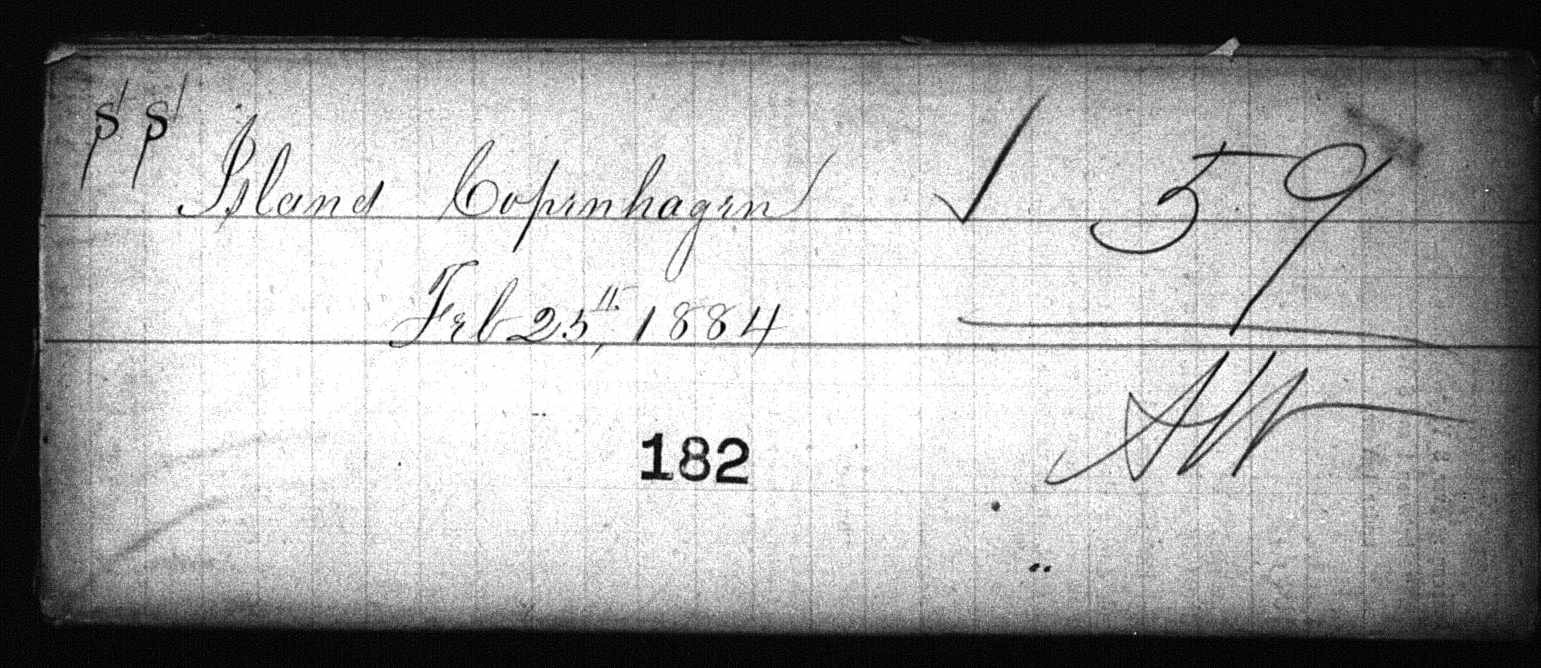 SS Island Copenhagen ✓ 59
Feb 25th, 1884
182